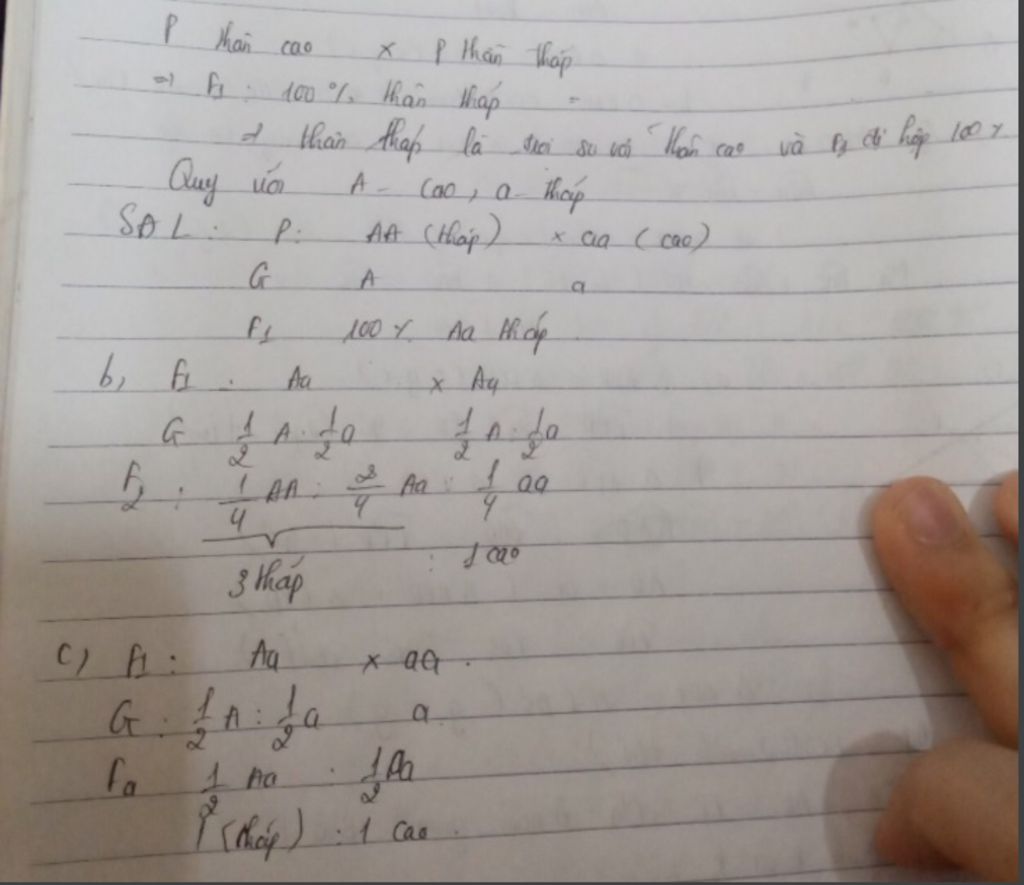 P thân cao x P thân thấp
=> F1 : 100 % thân thấp
=> thân thấp là so với thân cao và F1 dị hợp 100 %
Quy ước A - Cao, a - thấp
SĐL : P : AA (thấp) x aa (cao)
G A a
F1 100 % Aa thấp
b, F1 : Aa x Aa
G 1/2 A : 1/2 a 1/2 A : 1/2 a
F2 : 1/4 AA : 2/4 Aa : 1/4 aa
3 thấp : 1 cao
c) F1 : Aa x aa .
G : 1/2 A : 1/2 a a
Fa 1/2 Aa : 1/2 Aa
1 (thấp) : 1 cao .